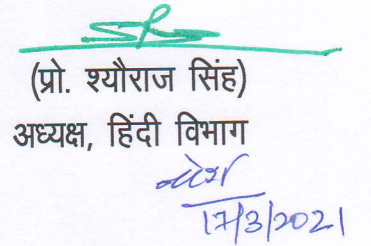 (प्रो. श्यौराज सिंह)
अध्यक्ष, हिंदी विभाग
17/3/2021